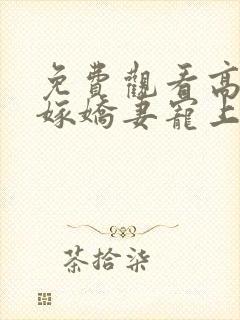 免費觀看高
嫁嬌妻寵上
茶拾柒